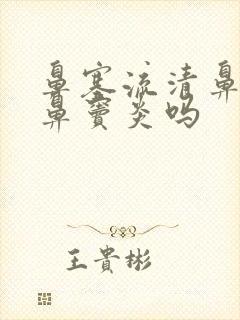 鼻塞流清鼻
鼻窦炎吗
王貴彬